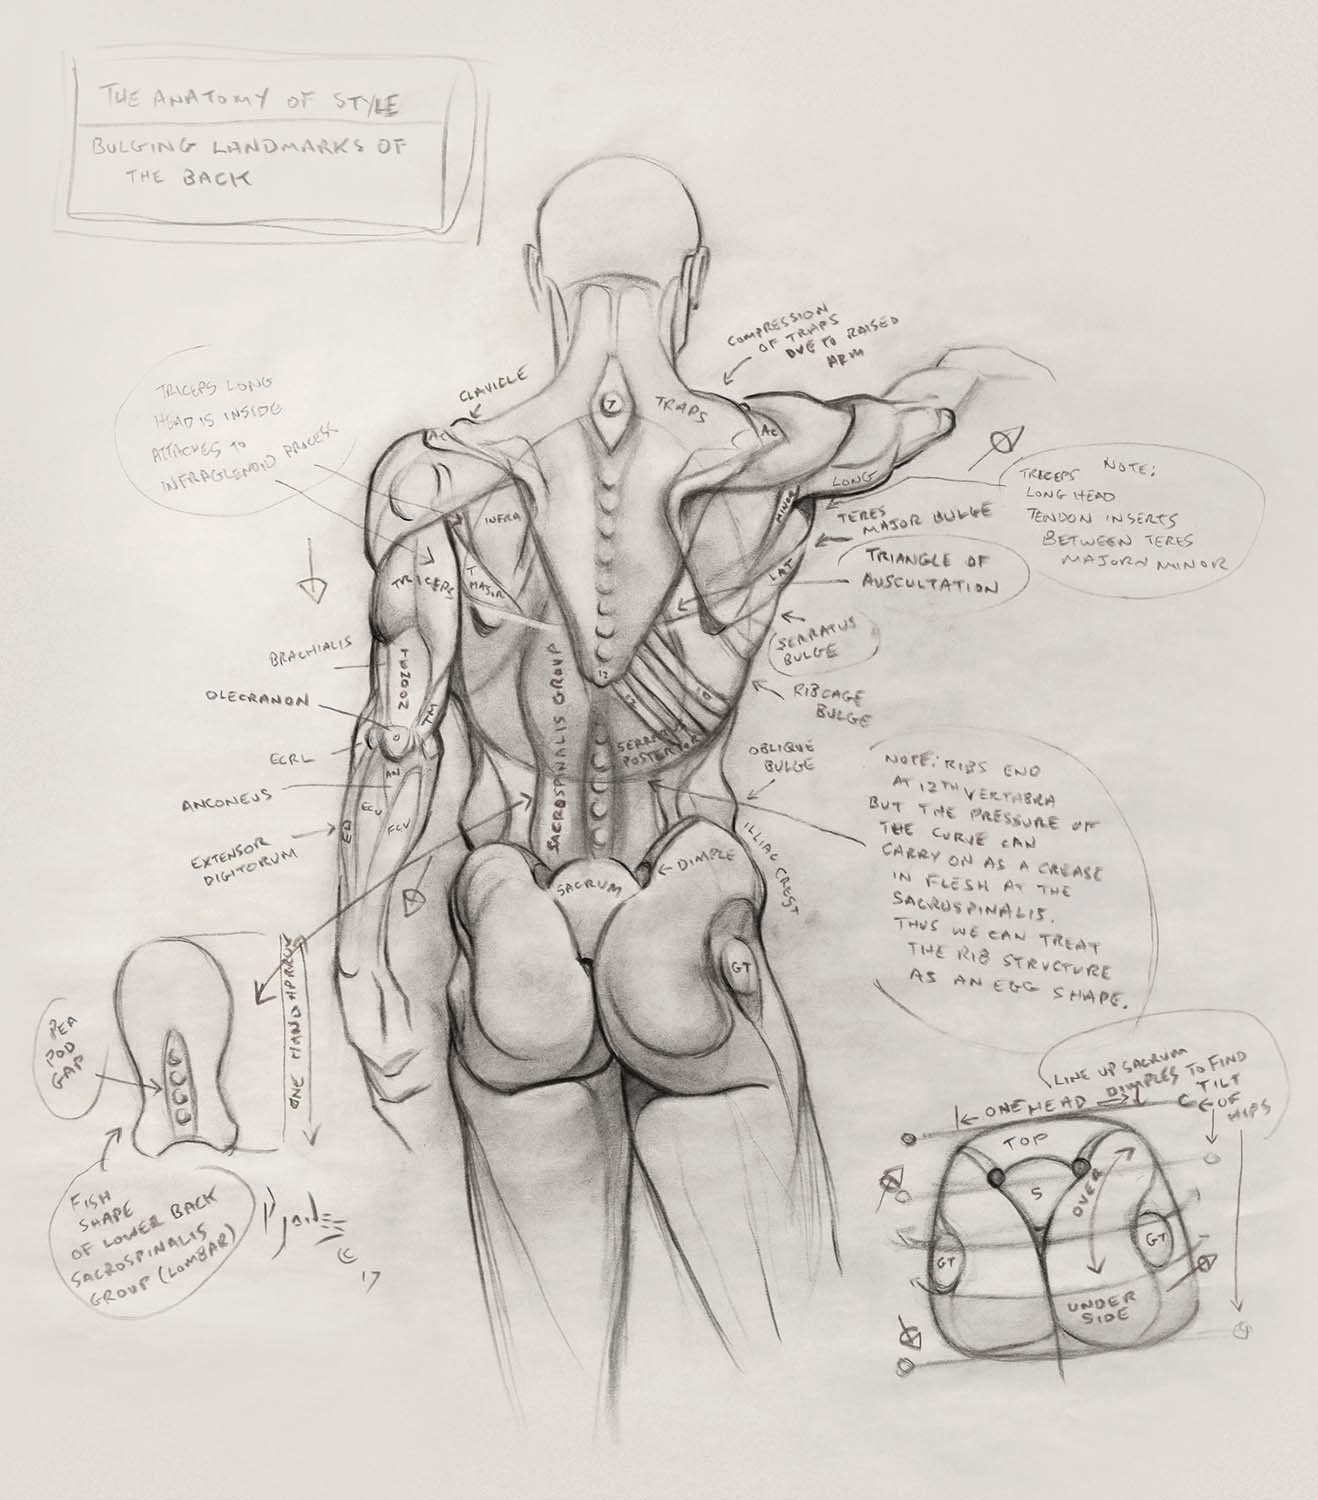 THE ANATOMY OF STYLE
BULGING LANDMARKS OF
THE BACK
COMPRESSION
OF TRAPS
DUE TO RAISED
ARM
CLAVICLE
TRICEPS LONG
HEAD IS INSIDE
ATTACHES TO
INFRAGLENOID PROCESS
AC
7
TRAPS
AC
LONG
MINOR
INFRA
TERES
MAJOR BULGE
TRICEPS NOTE:
LONG HEAD
TENDON INSERTS
BETWEEN TERES
MAJOR N MINOR
TRIANGLE OF
AUSCULTATION
LAT
T
MAJOR
TRICEPS
SERRATUS
BULGE
BRACHIALIS
TENDON
12
RIBCAGE
BULGE
OLECRANON
TM
O
12
10
SERRATUS
POSTERIOR
SACROSPINALIS GROUP
OBLIQUE
BULGE
ECRL
AN
ANCONEUS
ECU
FCU
ED
EXTENSOR
DIGITORUM
ILLIAC CREST
DIMPLE
SACRUM
GT
NOTE: RIBS END
AT 12TH VERTABRA
BUT THE PRESSURE OF
THE CURVE CAN
CARRY ON AS A CREASE
IN FLESH AT THE
SACROSPINALIS.
THUS WE CAN TREAT
THE RIB STRUCTURE
AS AN EGG SHAPE.
ONE HAND APPROX
PEA
POD
GAP
FISH
SHAPE
OF LOWER BACK
SACROSPINALIS
GROUP (LOMBAR)
© 17
LINE UP SACRUM
DIMPLES TO FIND
TILT
OF
HIPS
ONE HEAD
TOP
S
OVER
GT
GT
UNDER
SIDE